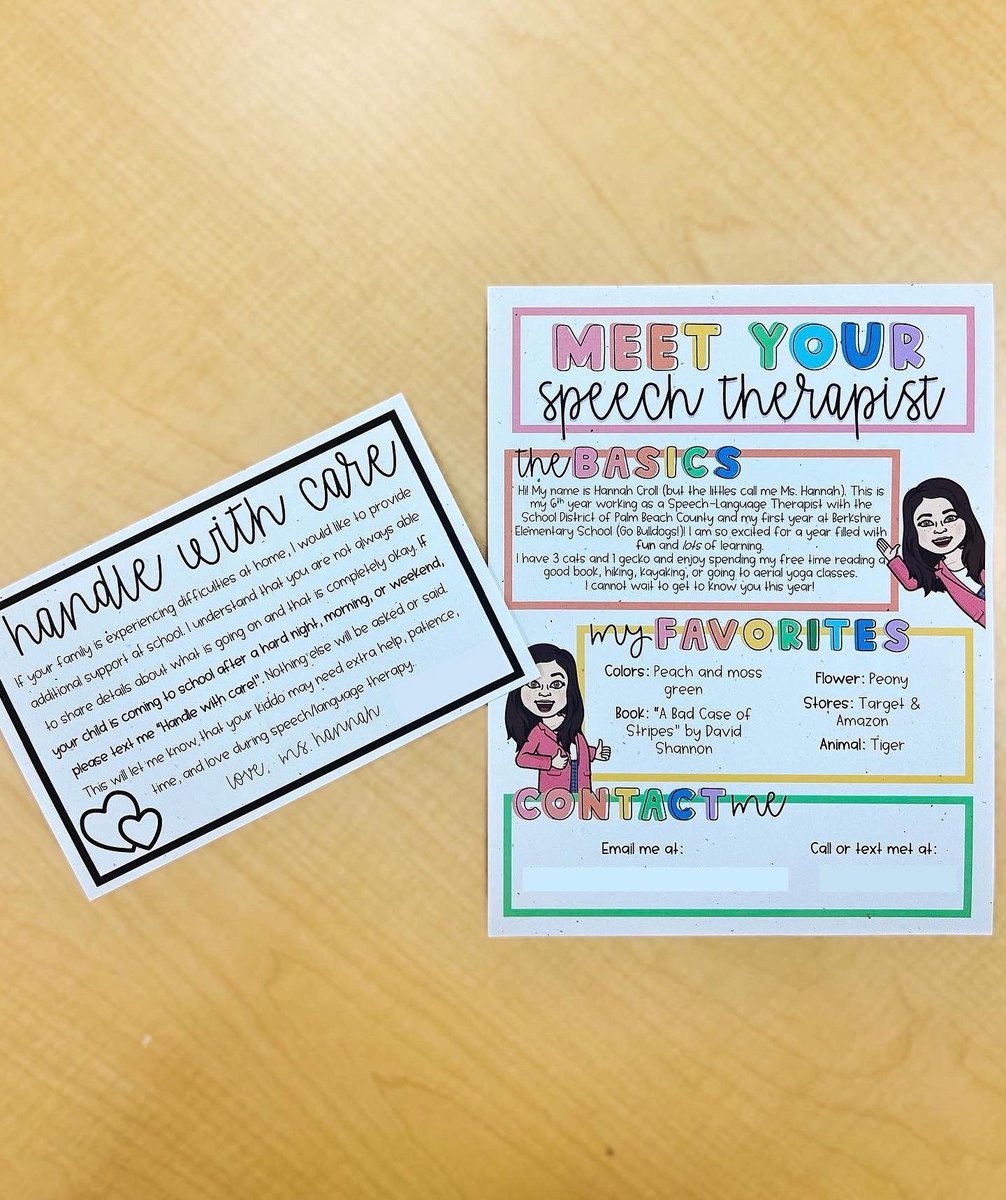 handle with care
If your family is experiencing difficulties at home, I would like to provide
additional support at school. I understand that you are not always able
to share details about what is going on and that is completely okay. If
your child is coming to school after a hard night, morning, or weekend,
please text me "Handle with care!". Nothing else will be asked or said.
This will let me know that your kiddo may need extra help, patience,
time, and love during speech/language therapy.
love, ms. hannah
MEET YOUR
speech therapist
the BASICS
Hi! My name is Hannah Croll (but the littles call me Ms. Hannah). This is
my 6th year working as a Speech-Language Therapist with the
School District of Palm Beach County and my first year at Berkshire
Elementary School (Go Bulldogs!)! I am so excited for a year filled with
fun and lots of learning.
I have 3 cats and 1 gecko and enjoy spending my free time reading a
good book, hiking, kayaking, or going to aerial yoga classes.
I cannot wait to get to know you this year!
my FAVORITES
Colors: Peach and moss
green
Book: "A Bad Case of
Stripes" by David
Shannon
Flower: Peony
Stores: Target &
Amazon
Animal: Tiger
CONTACT me
Email me at:
Call or text met at: